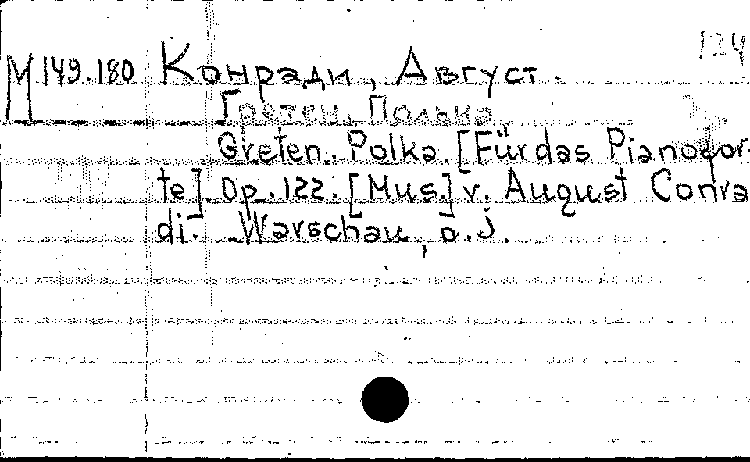 124
М 149.180 Конради, Август.
Гретен. Полька.
Greten. Polka. [Für das Pianofor-
te]. Op. 122. [Mus.] v. August Conra
di. Warschau, o. j.